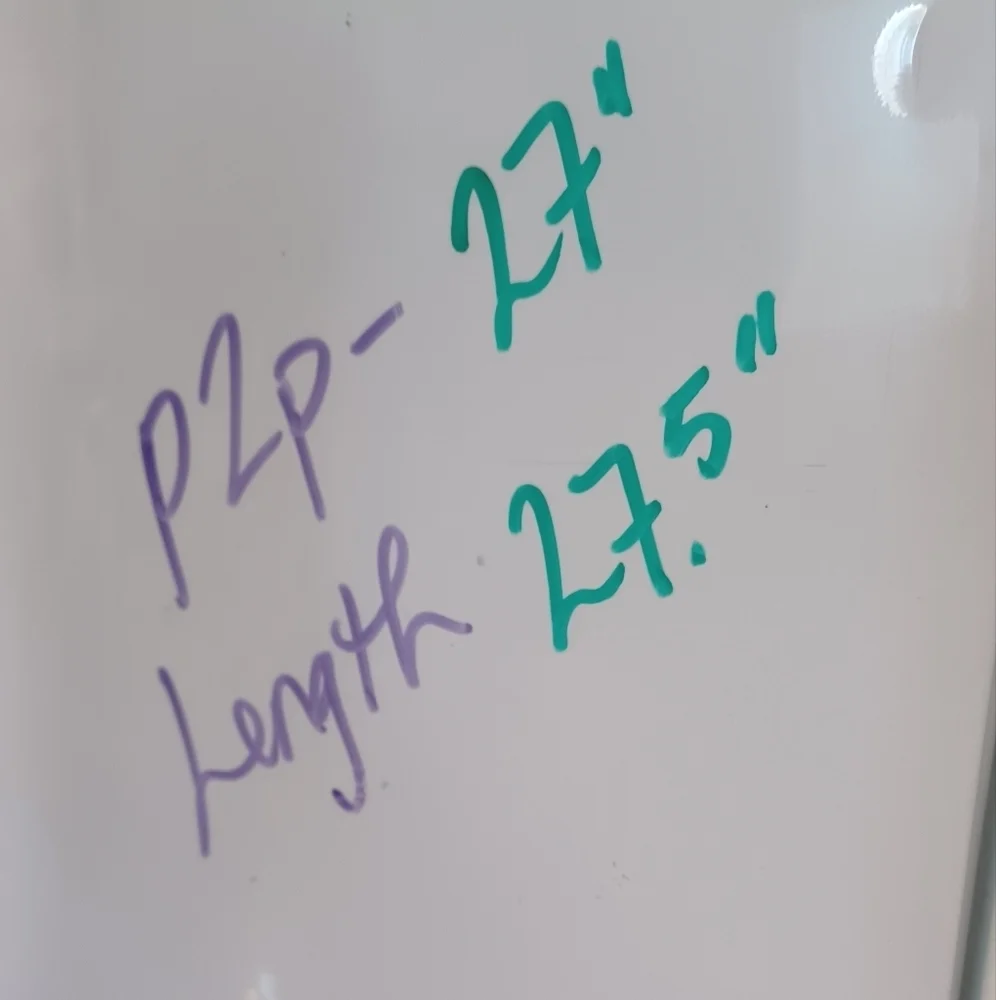 P2P- 27"
Length 27.5"